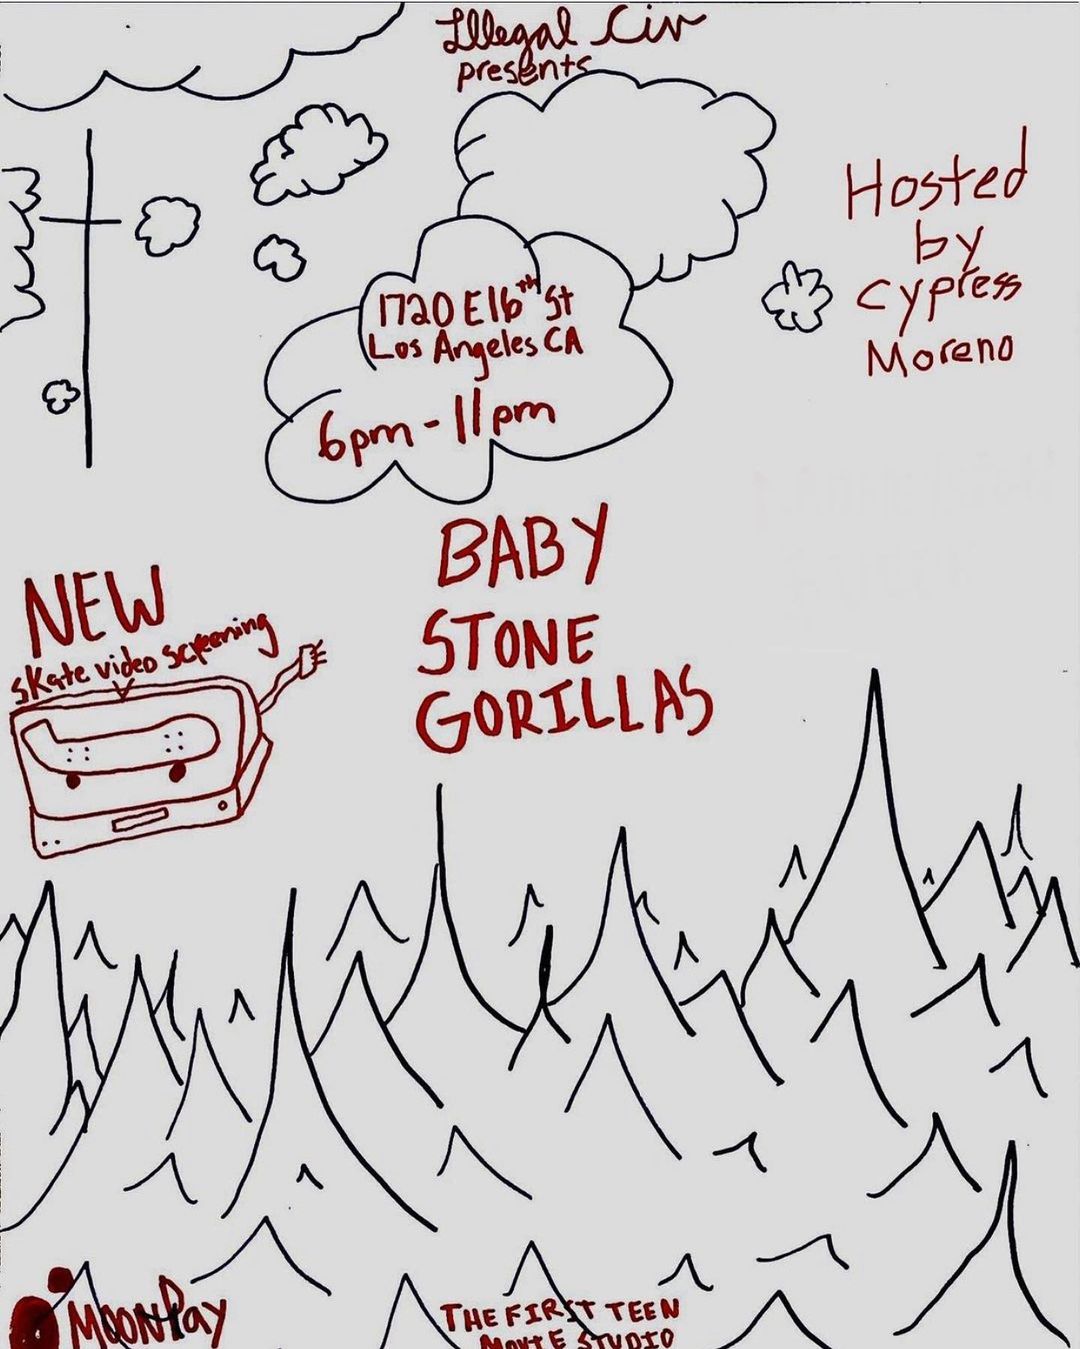 Illegal Civ
presents
Hosted
by
Cypress
Moreno
1720 E 16th St
Los Angeles CA
6pm - 11pm
BABY
STONE
GORILLAS
NEW
skate video screening
MOONPay
THE FIRST TEEN
MOVIE STUDIO